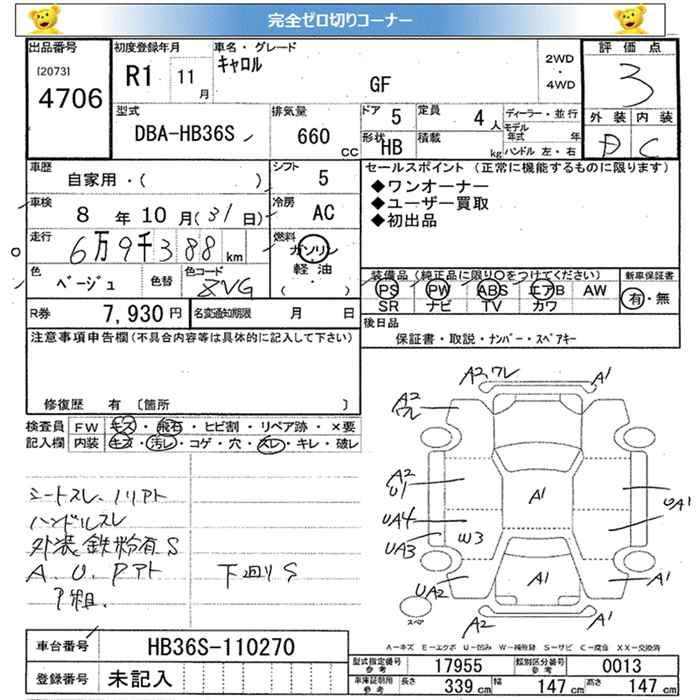 完全ゼロ切りコーナー
出品番号
[2073]
4706
初度登録年月
R1 11月
車名・グレード
キャロル
GF
2WD
・
4WD
評価点
3
型式
DBA-HB36S
排気量
660 CC
ドア 5
定員 4人
形状 HB
積載 kg
ディーラー・並行
モデル年式 年
ハンドル 左・右
外装 内装
D C
車歴
自家用・( )
シフト 5
車検
8年10月(31日)
冷房 AC
走行
6万9千388km
燃料
ガソリン
軽油
( ・ )
色
ベージュ
色替
色コード
ZVG
セールスポイント (正常に機能するものに限ります)
◆ワンオーナー
◆ユーザー買取
◆初出品
装備品(純正品に限り○をつけてください)
PS PW ABS エアB AW
SR ナビ TV カワ
新車保証書
有・無
R券 7,930円
名変通知期限 月 日
後日品
保証書・取説・ナンバー・スペアキー
注意事項申告欄(不具合内容等は具体的に記入して下さい)
修復歴 有 〔箇所 〕
検査員 FW キズ・飛石・ヒビ割・リペア跡・×要
記入欄 内装 キズ・汚レ・コゲ・穴・スレ・キレ・破レ
シートスレ、ノリアト
ハンドルスレ
外装鉄粉有S
A、U、Pアト
P組.
下廻りS
A2,ワレ
A1
A2
ワレ
A2
U1
A1
UA1
UA4
UA3
W3
UA2
A1
A1
A2
A1
スペア
A-キズ E-エクボ U-凹み W-補修跡 S-サビ C-腐食 XX-交換済
車台番号 HB36S-110270
登録番号 未記入
型式指定番号 参考 17955
類別区分番号 参考 0013
車庫証明用 参考 長さ 339cm 幅 147cm 高さ 147cm